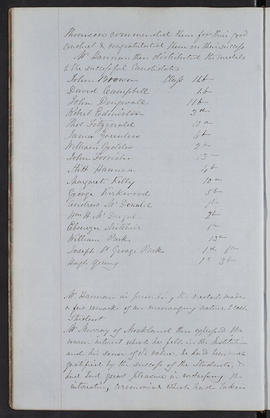 Thomson commended them for their good
conduct & congratulated them on their success
Mr Hannan then distributed the medals
to the successful Candidates
John Bowen Class 1st
David Campbell 1st
John Dougwale 11th
Robert Edmiston 3rd
Thos Fitzgerald
James Greenlees
William Geddes 2nd
John Forrester 13th
Matt Hannan
Margaret Kelly 10th
George Kirkwood 5th
Andrew McDonald 1st
Wm H. McDougal 2nd
Ebenezer
William Park 13th
Joseph St George Park 1st
Hugh Young 1st 3rd
Mr Hannan in presenting the medals made
a few remarks of an encouraging nature to each
Student
Mr Murray of Monkland then expressed the
warm interest which he felt in the Institution
and his sense of its value. He had been much
gratified by the success of the Students, &
had had great pleasure in witnessing the
interesting ceremonial which had taken